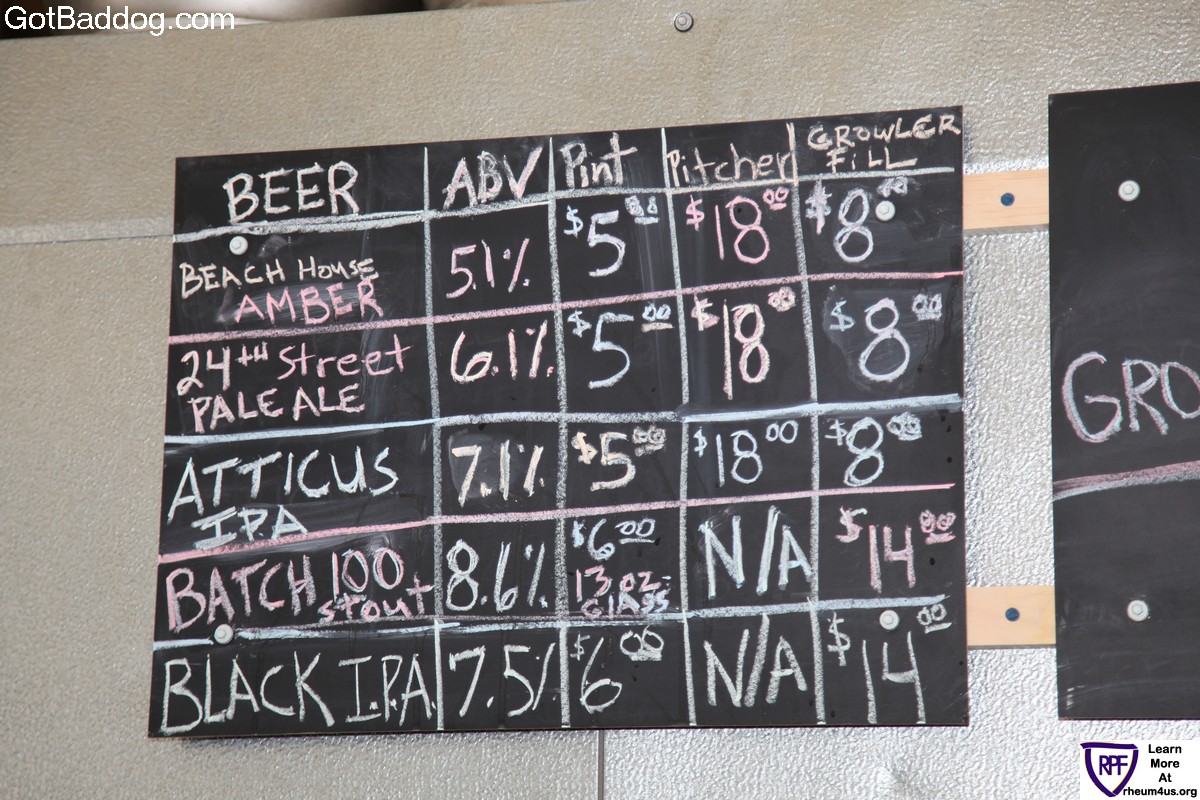 GotBaddog.com
BEER ABV Pint Pitcher GROWLER FILL
BEACH HOUSE AMBER 5.1% $5.00 $18.00 $8.00
24TH Street PALE ALE 6.1% $5.00 $18.00 $8.00
ATTICUS I.P.A 7.1% $5.00 $18.00 $8.00
BATCH 100 stout 8.6% $6.00 13 oz. GLASS N/A $14.00
BLACK I.P.A. 7.5% $6.00 N/A $14.00
GRO
RPF
Learn
More
At
rheum4us.org